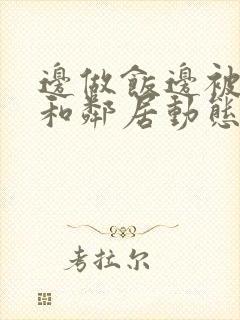 邊做飯邊被
和鄰居動態
考拉尔